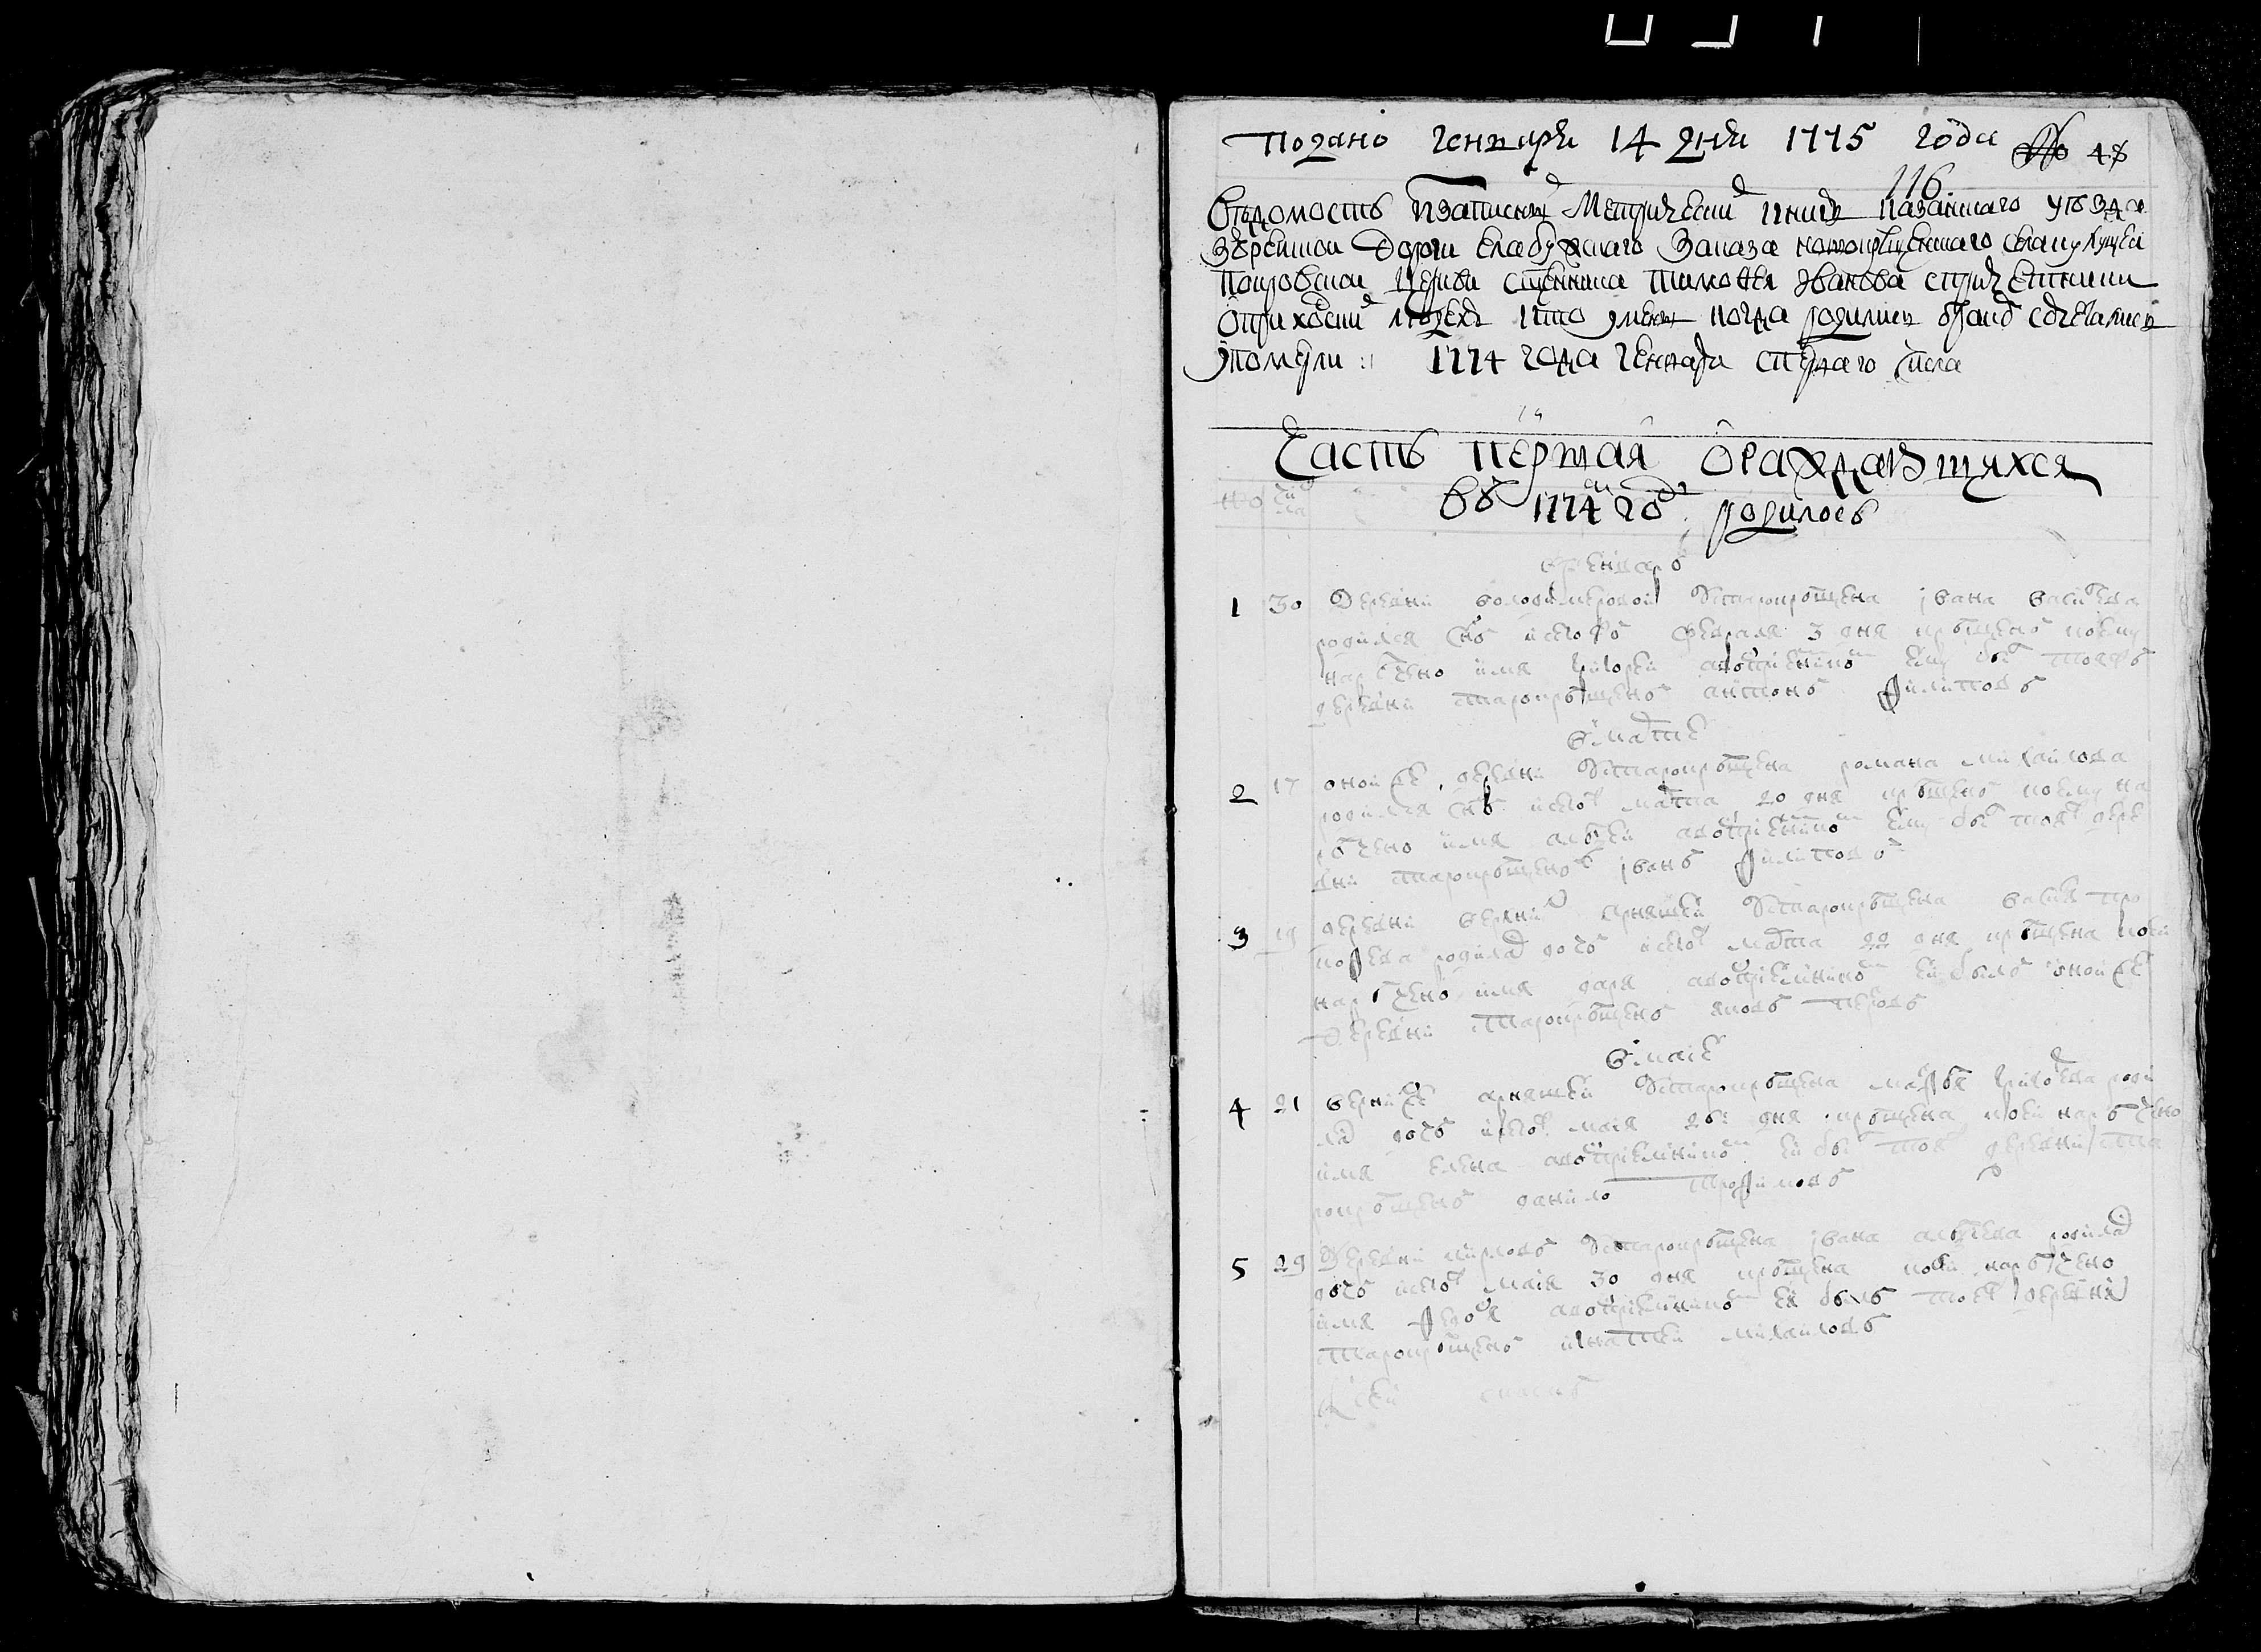 подано генваря 14 дня 1775 года № 48
116
Ведомость изаписных Метрических книгъ казанскаго уезда
Зюрейской Дороги елабужскаго Заказа новокрещенскаго села
Покровской Церкви священника Тимофея Иванова спричетники
Оприходских людехъ кто имяны когда родились браком сочетались
ипомерли : 1774 года генваря сперваго числа
Часть первая Ораждающихся
Въ 1774 году родилось
№ числа
Вгенваре
1 30 Деревни володимеровой Старокрещена Ивана Васильева
родился снъ иегов февраля 3 дня крещенъ икему
наречено имя григорей авосприемникомъ ему былъ тояжъ
деревни старокрещенъ антонъ Филиповъ
Вмарте
2 17 оной же деревни Старокрещена романа михайлова
родился снъ иегов марта 20 дня крещенъ икему на
речено имя алексей авосприемникомъ ему былъ тояж дере
вни старокрещенъ Иванъ Филиповъ
3 19 деревни верхнихъ арняшей Старокрещена Василья про
кофьева родилась дочь иегов марта 22 дня крещена икей
наречено имя дарья авосприемникомъ ей былъ оной же
деревни старокрещенъ яковъ петровъ
Вмаие
4 21 верхнихже арняшей Старокрещена матфея григорьева роди
лась дочь иегов маия 26: дня крещена икей наречено
имя елена авосприемникомъ ей былъ тояж деревни ста
рокрещенъ данило трофимовъ
5 29 Деревни Старокрещена Ивана алексеева родилась
дочь иегов маия 30 дня крещена икей наречено
имя федосья авосприемникомъ ей былъ тояж деревни
старокрещенъ игнатей михайловъ